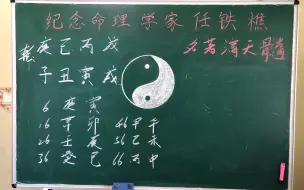 纪念命理学家任铁樵
名著滴天髓阐
乾
庚己丙戊
子丑寅戌
6 庚寅
16 辛卯 46 甲午
26 壬辰 56 乙未
36 癸巳 66 丙申